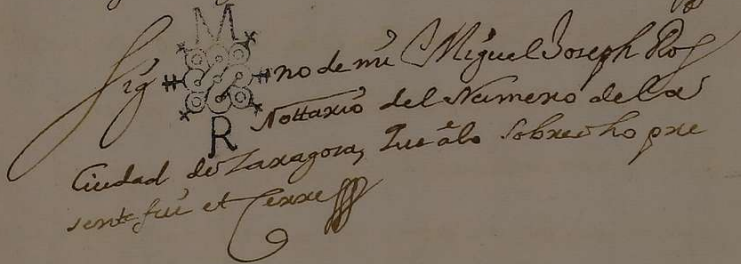 M
Sig no de mi Miguel Joseph
Nottario del Numero de la
Ciudad de Zaragoza, que â lo Sobredho pre
sente fui et Cerre
R